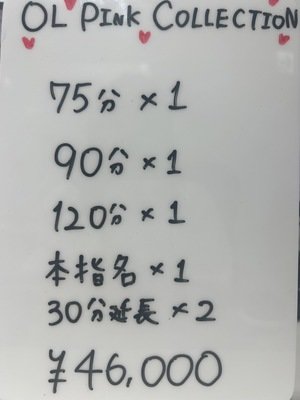 OL PINK COLLECTION
75分 × 1
90分 × 1
120分 × 1
本指名 × 1
30分延長 × 2
¥46,000